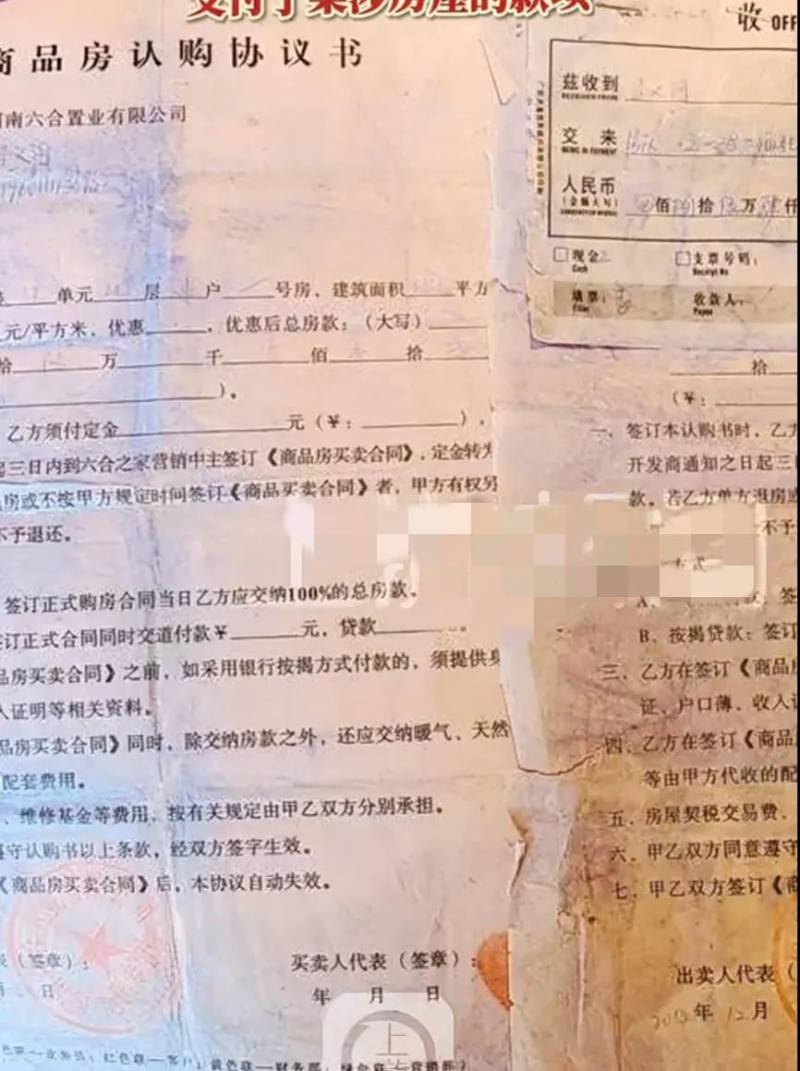 支付了案涉房屋的款项
商品房认购协议书
河南六合置业有限公司
单元 层 户 号房、建筑面积 平方
元/平方米、优惠 ，优惠后总房款：（大写）
拾 万 千 佰 拾
）。
乙方须付定金 元（¥： ），
起三日内到六合之家营销中主签订《商品房买卖合同》，定金转为
房或不按甲方规定时间签订《商品买卖合同》者，甲方有权另
不予退还。
签订正式购房合同当日乙方应交纳100%的总房款。
签订正式合同同时交道付款¥ 元，贷款 。
品房买卖合同》之前，如采用银行按揭方式付款的，须提供身
入证明等相关资料。
品房买卖合同》同时，除交纳房款之外，还应交纳暖气、天然
配套费用。
、维修基金等费用，按有关规定由甲乙双方分别承担。
遵守认购书以上条款，经双方签字生效。
《商品房买卖合同》后，本协议自动失效。
（签章）：
买卖人代表（签章）：
月 日
年 月 日
收 OFF
兹收到
交来
人民币
（金额大写）
佰 拾 万 仟
现金
Cash
支票号码：
填票：
收款人：
Payee
拾
（¥：
一、签订本认购书时，乙方
开发商通知之日起三
款。若乙方单方退房或
不予
方式
A、 签
B、按揭贷款：签订
三、乙方在签订《商品房
证、户口薄、收入证
四、乙方在签订《商品
等由甲方代收的配
五、房屋契税交易费、
六、甲乙双方同意遵守
七、甲乙双方签订《商
出卖人代表（
年12月